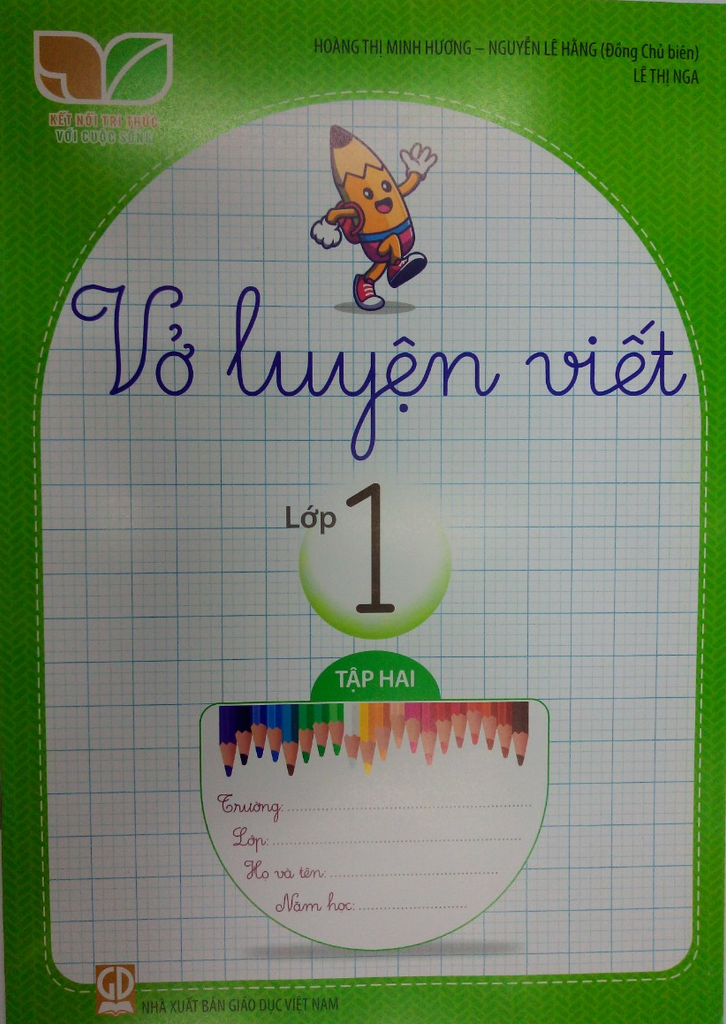 HOÀNG THỊ MINH HƯƠNG – NGUYỄN LÊ HẰNG (Đồng Chủ biên)
LÊ THỊ NGA
KẾT NỐI TRI THỨC
VỚI CUỘC SỐNG
Vở luyện viết
Lớp 1
TẬP HAI
Trường:
Lớp:
Họ và tên:
Năm học:
GD
NHÀ XUẤT BẢN GIÁO DỤC VIỆT NAM